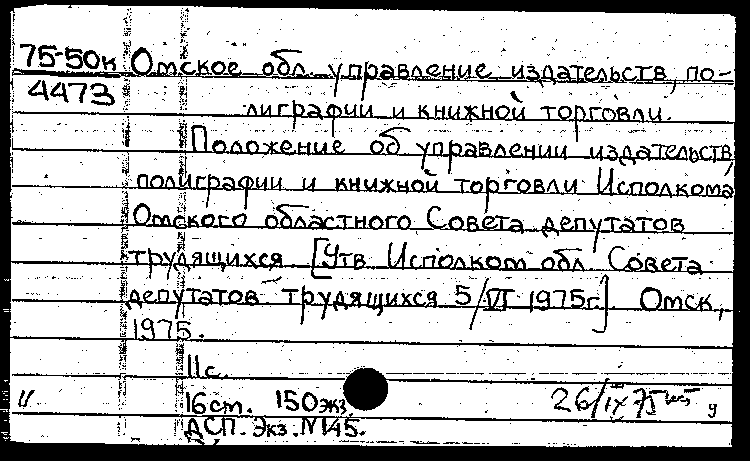 75-50к Омское обл. управление издательств, по-
4473 лиграфии и книжной торговли.
Положение об управлении издательств,
полиграфии и книжной торговли Исполкома
Омского областного Совета депутатов
трудящихся. [Утв Исполком обл. Совета
депутатов трудящихся 5/VI 1975г.] Омск,
1975.
11с.
16ст. 150экз.
26/IX 75
ДСП. Экз. №145.